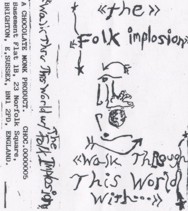 «the»
Folk implosion»
«Walk Through
This World
With...»
Walk Thru This World w/ Folk
The Implosion
A CHOCOLATE MONK PRODUCT. CHOC.OO0OO9,
Basement Flat 1B, 23 Norfolk Square,
BRIGHTON, E.SUSSEX, BN1 2PD, ENGLAND.